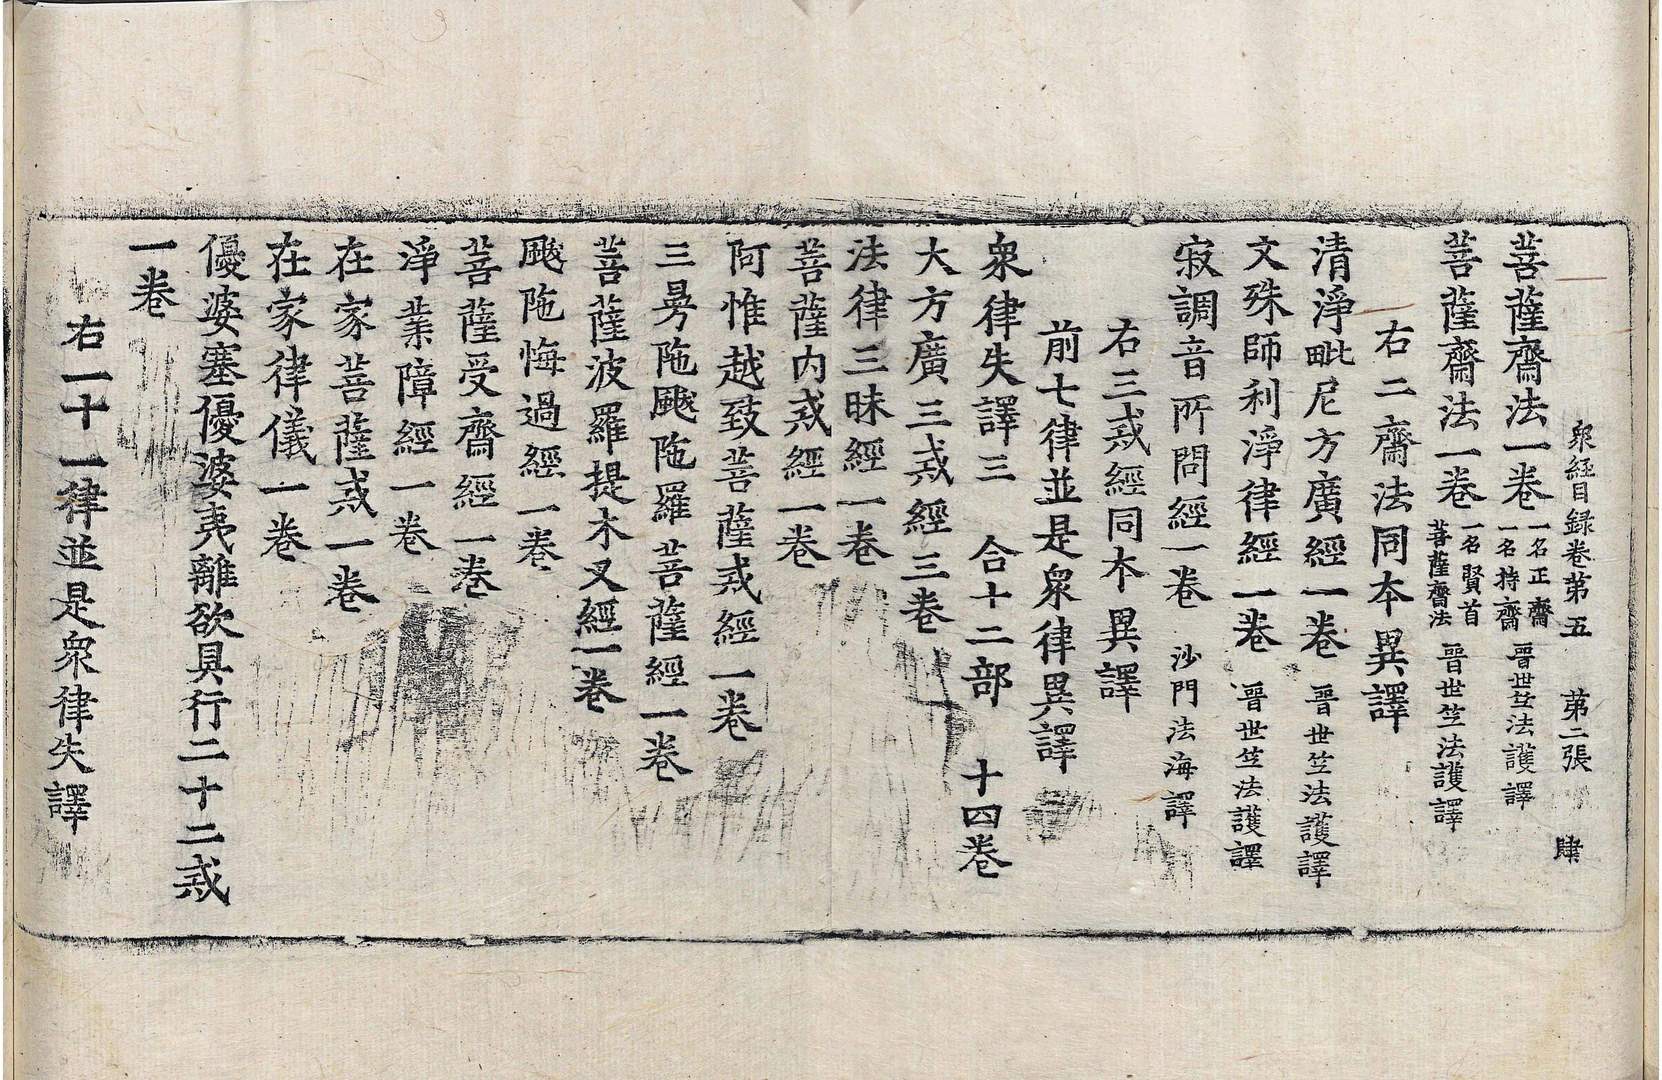 衆經目録卷第五　第二張　肆
菩薩齋法一卷 一名正齋 一名持齋 晉世竺法護譯
菩薩齋法一卷 一名賢首 菩薩齋法 晉世竺法護譯
右二齋法同本異譯
清淨毗尼方廣經一卷 晉世竺法護譯
文殊師利淨律經一卷 晉世竺法護譯
寂調音所問經一卷 沙門法海譯
右三戒經同本異譯
前七律並是衆律異譯
衆律失譯三　合十二部　十四卷
大方廣三戒經三卷
法律三昧經一卷
菩薩内戒經一卷
阿惟越致菩薩戒經一卷
三曼陁颰陁羅菩薩經一卷
菩薩波羅提木叉經一卷
颰陁悔過經一卷
菩薩受齋經一卷
淨業障經一卷
在家菩薩戒一卷
在家律儀一卷
優婆塞優婆夷離欲具行二十二戒
一卷
右一十一律並是衆律失譯